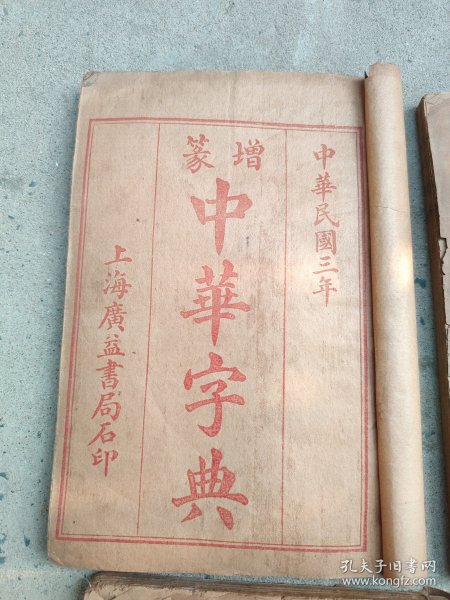 中華民國三年
增篆
中華字典
上海廣益書局石印
孔夫子旧书网
www.kongfz.com